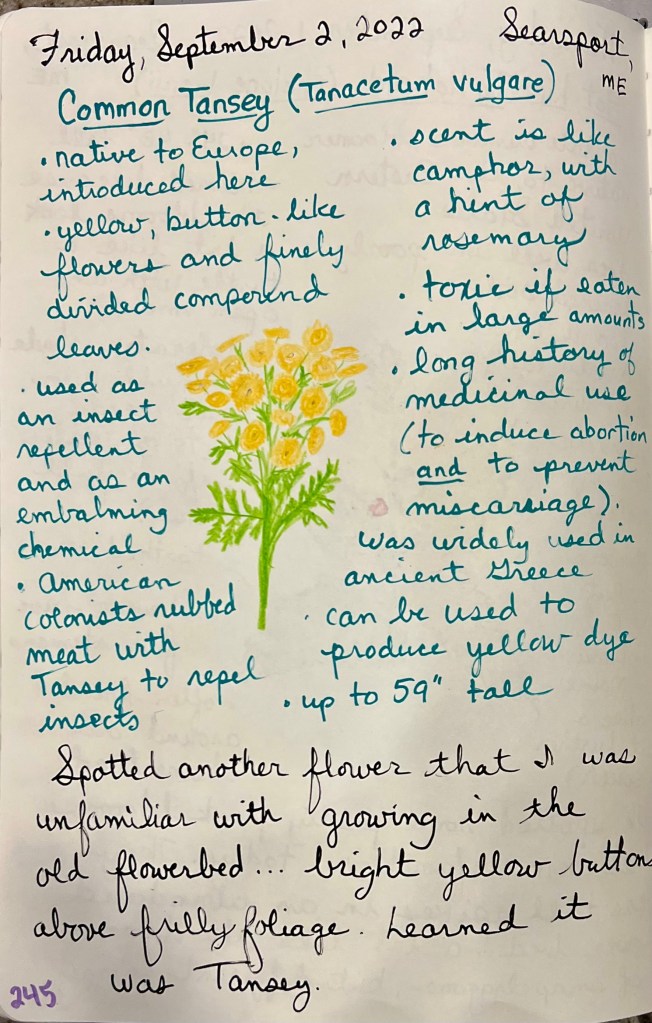 Friday, September 2, 2022
Searsport,
ME
Common Tansey (Tanacetum vulgare)
• native to Europe,
introduced here
• yellow, button-like
flowers and finely
divided compound
leaves.
• used as
an insect
repellent
and as an
embalming
chemical
• American
colonists rubbed
meat with
Tansey to repel
insects
• scent is like
camphor, with
a hint of
rosemary
• toxic if eaten
in large amounts
• long history of
medicinal use
(to induce abortion
and to prevent
miscarriage).
was widely used in
ancient Greece
• can be used to
produce yellow dye
• up to 59" tall
Spotted another flower that I was
unfamiliar with growing in the
old flowerbed... bright yellow buttons
above frilly foliage. Learned it
was Tansey.
245